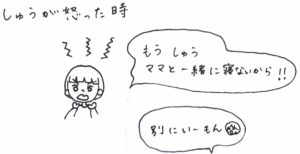 しゅうが怒った時
もう しゅう
ママと一緒に寝ないから!!
別にいーもん